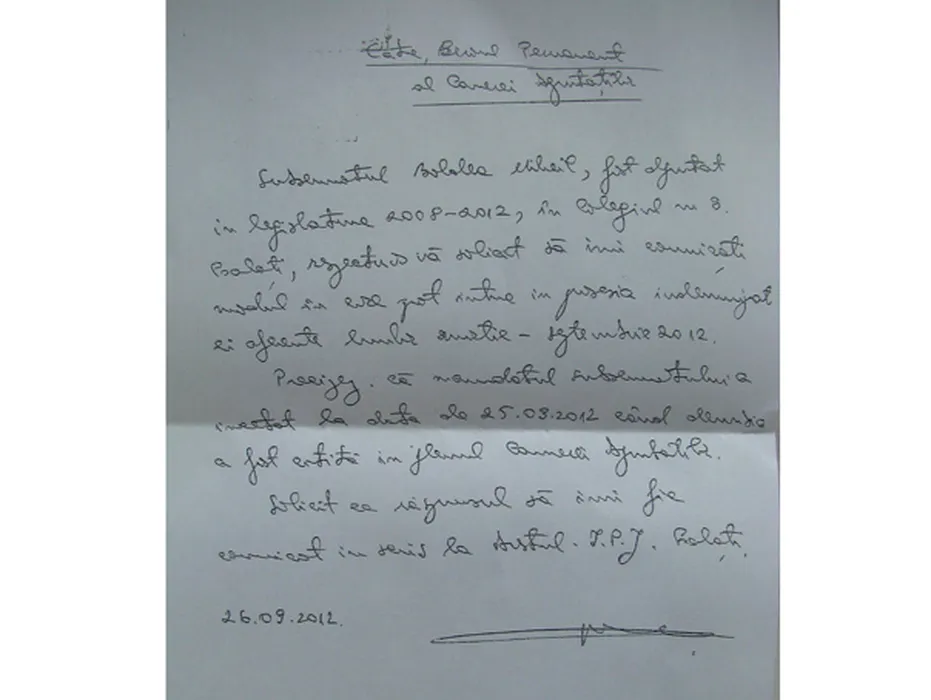 Către, Biroul Permanent
al Camerei Deputaților
Subsemnatul Boldea Mihail, fost deputat
în legislatura 2008-2012, în Colegiul nr 3.
Galați, respectuos vă solicit să îmi comunicați
modul în care pot intra în posesia indemnizați
ei aferente lunilor martie - septembrie 2012.
Precizez că mandatul subsemnatului a
încetat la data de 25.09.2012 când demisia
a fost citită în plenul Camerei Deputaților.
Solicit ca răspunsul să îmi fie
comunicat în scris la Arestul I.P.J. Galați.
26.09.2012.